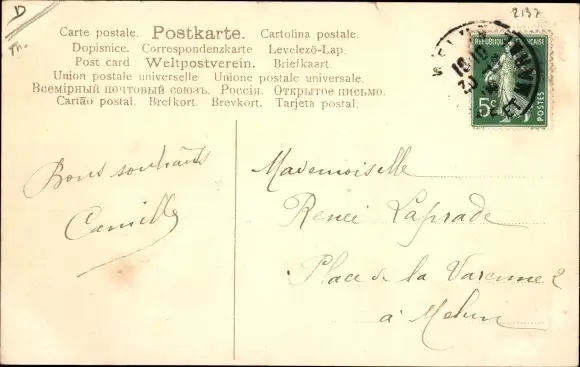 D
2137
Carte postale. Postkarte. Cartolina postale.
Dopisnice. Correspondenzkarte Levelezö-Lap.
Post card Weltpostverein. Briefkaart
Union postale universelle Unione postale universale.
Всемірный почтовый союзъ. Россія. Открытое письмо.
Cartão postal. Brefkort. Brevkort. Tarjeta postal.
REPUBLIQUE FRANÇAISE
5c
POSTES
Bons souhaits
Camille
Mademoiselle
Renée Laprade
Place de la Varenne 2
à Melun